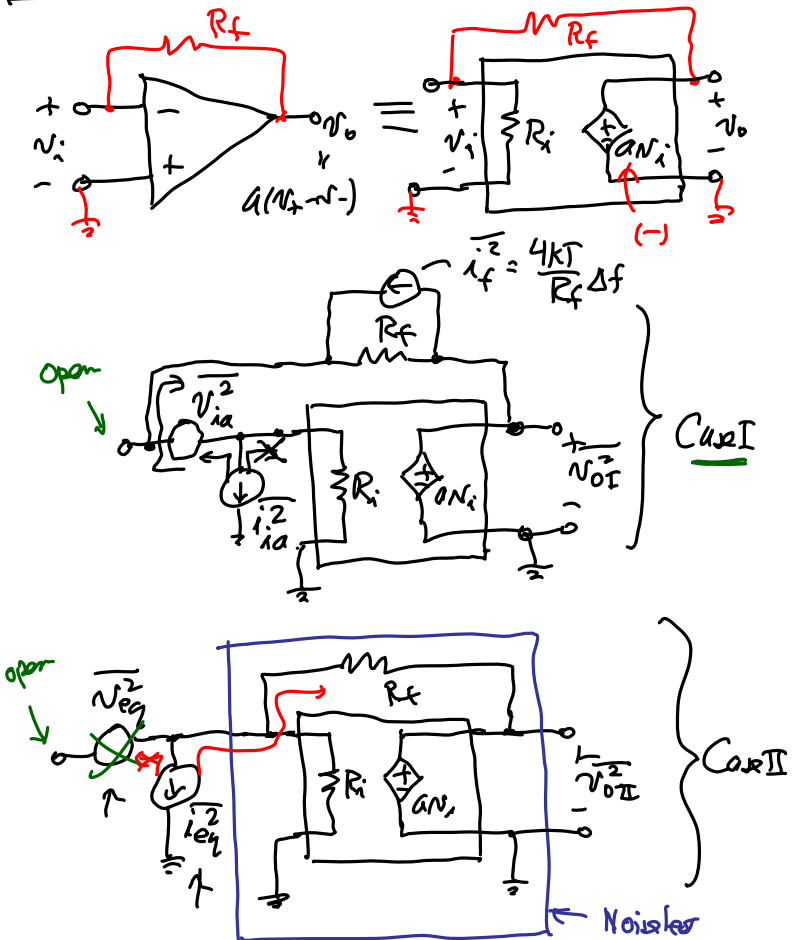 R_f
R_f
+
-
v_i
-
+
v_o
a(v_+ - v_-)
≡
+
v_i
-
R_i
+
-
a v_i
+
v_o
-
(-)
\overline{i_f^2} = \frac{4kT}{R_f} Δf
R_f
open
\overline{v_{ia}^2}
\overline{i_{ia}^2}
R_i
+
-
a v_i
+
\overline{v_{oI}^2}
-
Case I
open
\overline{v_{eq}^2}
\overline{i_{eq}^2}
R_f
R_i
+
-
a v_i
+
\overline{v_{oII}^2}
-
Case II
Noiseless